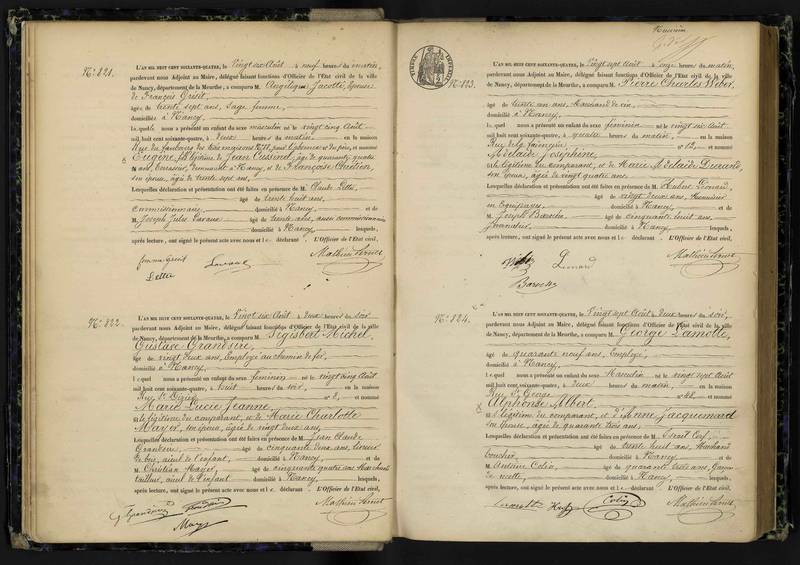 N° 821.
L'AN MIL HUIT CENT SOIXANTE-QUATRE, le Vingt six Août à neuf heures du matin,
pardevant nous Adjoint au Maire, délégué faisant fonctions d'Officier de l'Etat civil de la ville
de Nancy, département de la Meurthe, a comparu M. Angélique Jacotté, épouse
de François Grisit
âgée de trente sept ans, Sage femme,
domiciliée à Nancy
laquelle nous a présenté un enfant du sexe masculin né le vingt cinq Août
mil huit cent soixante-quatre, à deux heures du matin en la maison
Rue du faubourg des trois maisons et nommé
Eugène, fils légitime de Jean âgé de quarante quatre
ans, demeurant à Nancy, et de Françoise Chrétien,
son épouse, âgée de trente sept ans,
Lesquelles déclaration et présentation ont été faites en présence de M. Claude Lette,
âgé de trente huit ans,
commissionnaire domicilié à Nancy et de
M. Joseph Jules Lavaux âgé de trente ans, aussi commissionnaire
domicilié à Nancy lesquels,
après lecture, ont signé le présent acte avec nous et le déclarant. L'Officier de l'Etat civil,
femme Grisit
Lette
Mathieu
N° 822.
L'AN MIL HUIT CENT SOIXANTE-QUATRE, le Vingt six Août à deux heures du soir
pardevant nous Adjoint au Maire, délégué faisant fonctions d'Officier de l'Etat civil de la ville
de Nancy, département de la Meurthe, a comparu M. Sigisbert Michel
Gustave
âgé de vingt deux ans, Employé au chemin de fer,
domicilié à Nancy
lequel nous a présenté un enfant du sexe féminin né le vingt cinq Août
mil huit cent soixante-quatre, à huit heures du soir, en la maison
Rue St Dizier N° 8, et nommé
Marie Lucie Jeanne
légitime du comparant, et de Marie Charlotte
Mayer, son épouse, âgée de vingt deux ans,
Lesquelles déclaration et présentation ont été faites en présence de M. Jean Claude
âgé de cinquante deux ans,
aïeul de l'enfant domicilié à Nancy et de
M. Christian Mayer, âgé de cinquante quatre ans, Marchand
tailleur, aïeul de l'enfant domicilié à Nancy lesquels,
après lecture, ont signé le présent acte avec nous et le déclarant. L'Officier de l'Etat civil,
Mathieu
Mayer
TIMBRE IMPÉRIAL
N° 823.
L'AN MIL HUIT CENT SOIXANTE-QUATRE, le Vingt sept Août à onze heures du matin,
pardevant nous Adjoint au Maire, délégué faisant fonctions d'Officier de l'Etat civil de la ville
de Nancy, département de la Meurthe, a comparu M. Pierre Charles Weber,
âgé de trente un ans, Marchand de vin,
domicilié à Nancy
lequel nous a présenté un enfant du sexe féminin né le vingt six Août
mil huit cent soixante-quatre, à quatre heures du matin, en la maison
Rue de N° 12, et nommé
Adelaïde Joséphine
légitime du comparant, et de Marie Adelaïde Durand,
son épouse, âgée de vingt quatre ans.
Lesquelles déclaration et présentation ont été faites en présence de M. Hubert Leonard,
âgé de vingt deux ans, Menuisier
en Equipages domicilié à Nancy et de
M. Joseph âgé de cinquante huit ans,
Journalier domicilié à Nancy lesquels,
après lecture, ont signé le présent acte avec nous et le déclarant. L'Officier de l'Etat civil,
Leonard
Mathieu
N° 824.
L'AN MIL HUIT CENT SOIXANTE-QUATRE, le Vingt sept Août à deux heures du soir,
pardevant nous Adjoint au Maire, délégué faisant fonctions d'Officier de l'Etat civil de la ville
de Nancy, département de la Meurthe, a comparu M. George Lamotte,
âgé de quarante neuf ans, Employé,
domicilié à Nancy
lequel nous a présenté un enfant du sexe Masculin né le vingt sept Août
mil huit cent soixante-quatre, à deux heures du matin, en la maison
Rue St George N° et nommé
Alphonse Albert
légitime du comparant, et d'Anne Jacquemard
son épouse, âgée de quarante trois ans,
Lesquelles déclaration et présentation ont été faites en présence de M. Israël Cerf,
âgé de trente huit ans, Marchand
boucher, domicilié à Nancy et de
M. Antoine Colin, âgé de quarante trois ans, Garçon
de recette, domicilié à Nancy lesquels,
après lecture, ont signé le présent acte avec nous et le déclarant. L'Officier de l'Etat civil,
Lamotte
Colin
Mathieu